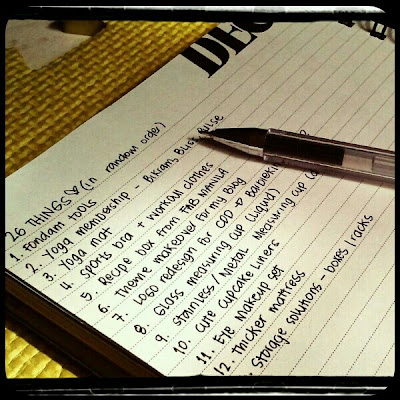 DEC
26 THINGS ♡ (in random order)
1. Fondant tools
2. Yoga membership - Bikram,
3. Yoga mat
4. Sports bra + workout clothes
5. Recipe box from FAB MANILA
6. Theme makeover for my blog
7. Logo redesign for +
8. Glass measuring cup (liquid)
9. Stainless / Metal Measuring cup
10. Cute cupcake liners
11. EYE Makeup set
12. Thicker mattress
. Storage solutions - boxes / racks